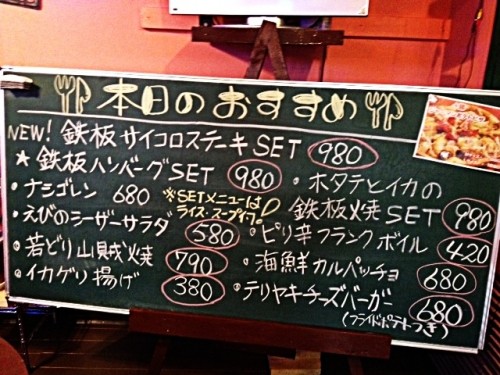 本日のおすすめ
NEW! 鉄板サイコロステーキSET 980
★ 鉄板ハンバーグSET 980
・ナシゴレン 680
※SETメニューは
ライス・スープイフ。
・えびのシーザーサラダ 580
・若どり山賊焼 790
・イカゲソ揚げ 380
・ホタテとイカの
鉄板焼SET 980
・ピリ辛フランクボイル 420
・海鮮カルパッチョ 680
・テリヤキチーズバーガー 680
(フライドポテトつき)